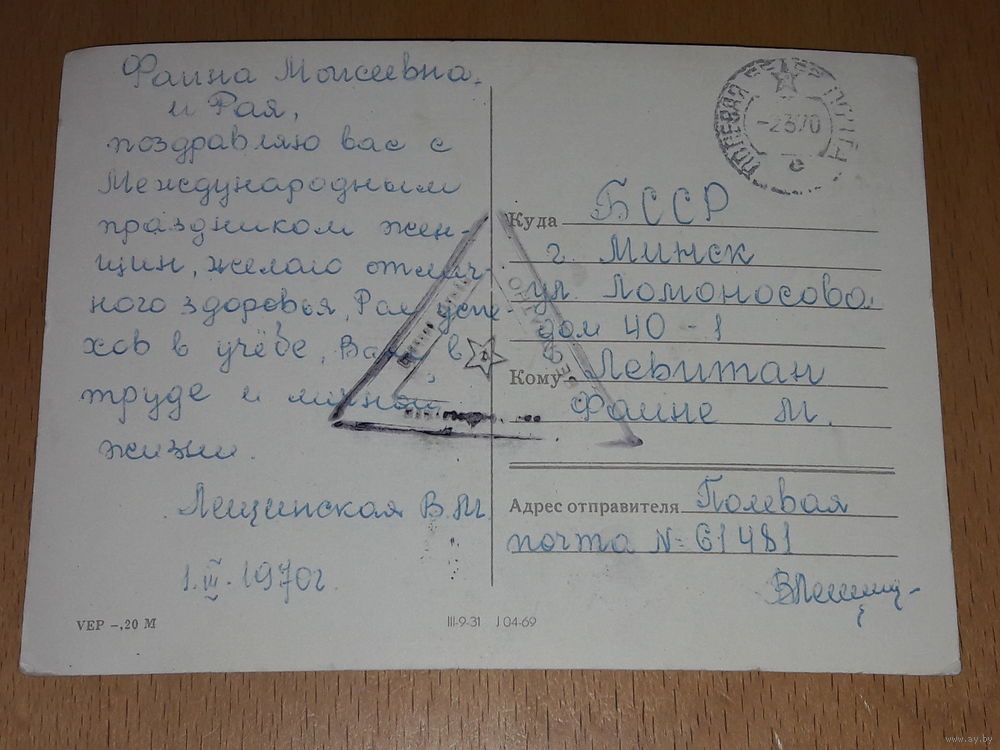 Фаина Моисеевна,
и Рая,
поздравляю вас с
Международным
праздником жен-
щин, желаю отлич-
ного здоровья, Рая успе-
хов в учёбе, Вам в
труде и личной
жизни.
Лещинская В.М.
1.III.1970г.
VEP –,20 M
III-9-31 J 04-69
ПОЛЕВАЯ ПОЧТА
-2 3 70
с
Куда БССР
г. Минск
ул. Ломоносова
дом 40 - 1
Кому Левитан
Фаине М.
Адрес отправителя Полевая
почта № 61481
www.ay.by